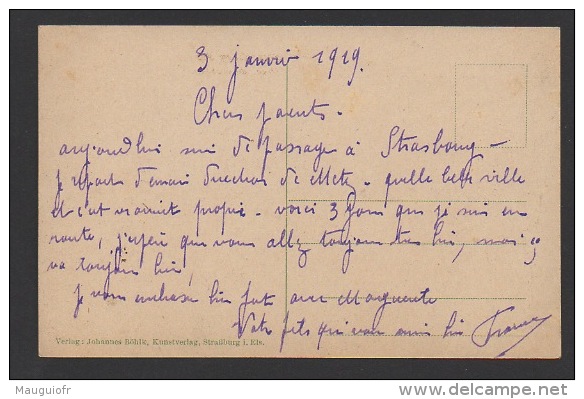 3 janvier 1919.
Chers parents.
aujourd'hui suis de passage à Strasbourg -
je repart demain direction de Metz. quelle belle ville
et c'est vraiment propre. voici 3 jours que je suis en
route, j'espère que vous allez toujours très bien, moi ça
va toujours bien,
je vous embrasse bien fort avec Marguerite
Votre fils qui vous aime bien
Verlag: Johannes Böhlk, Kunstverlag, Straßburg i. Els.
Mauguiofr
www.delcampe.net